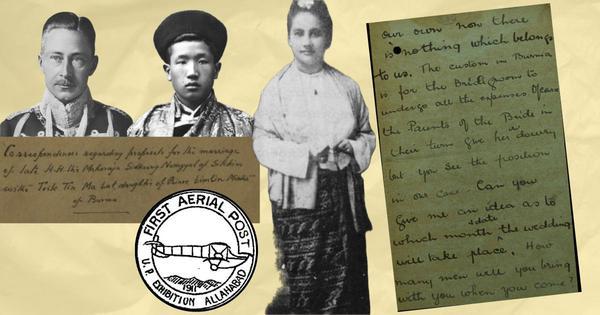 Correspondence regarding proposals for the marriage
of late H.H. the Maharaja Sidkeong Namgyal of Sikkim
with Teik Tin Ma Lat daughter of Prince Limbin Mintha
of Burma
FIRST AERIAL POST
1911
U.P. EXHIBITION ALLAHABAD
our own now there
is nothing which belongs
to us. The custom in Burma
is for the Bridegroom to
undergo all the expenses. Of course
the Parents of the Bride in
their turn give her a dowry
but you see the position
in our case. Can you
give me an idea as to
which month & date the wedding
will take place. How
many men will you bring
with you when you come?